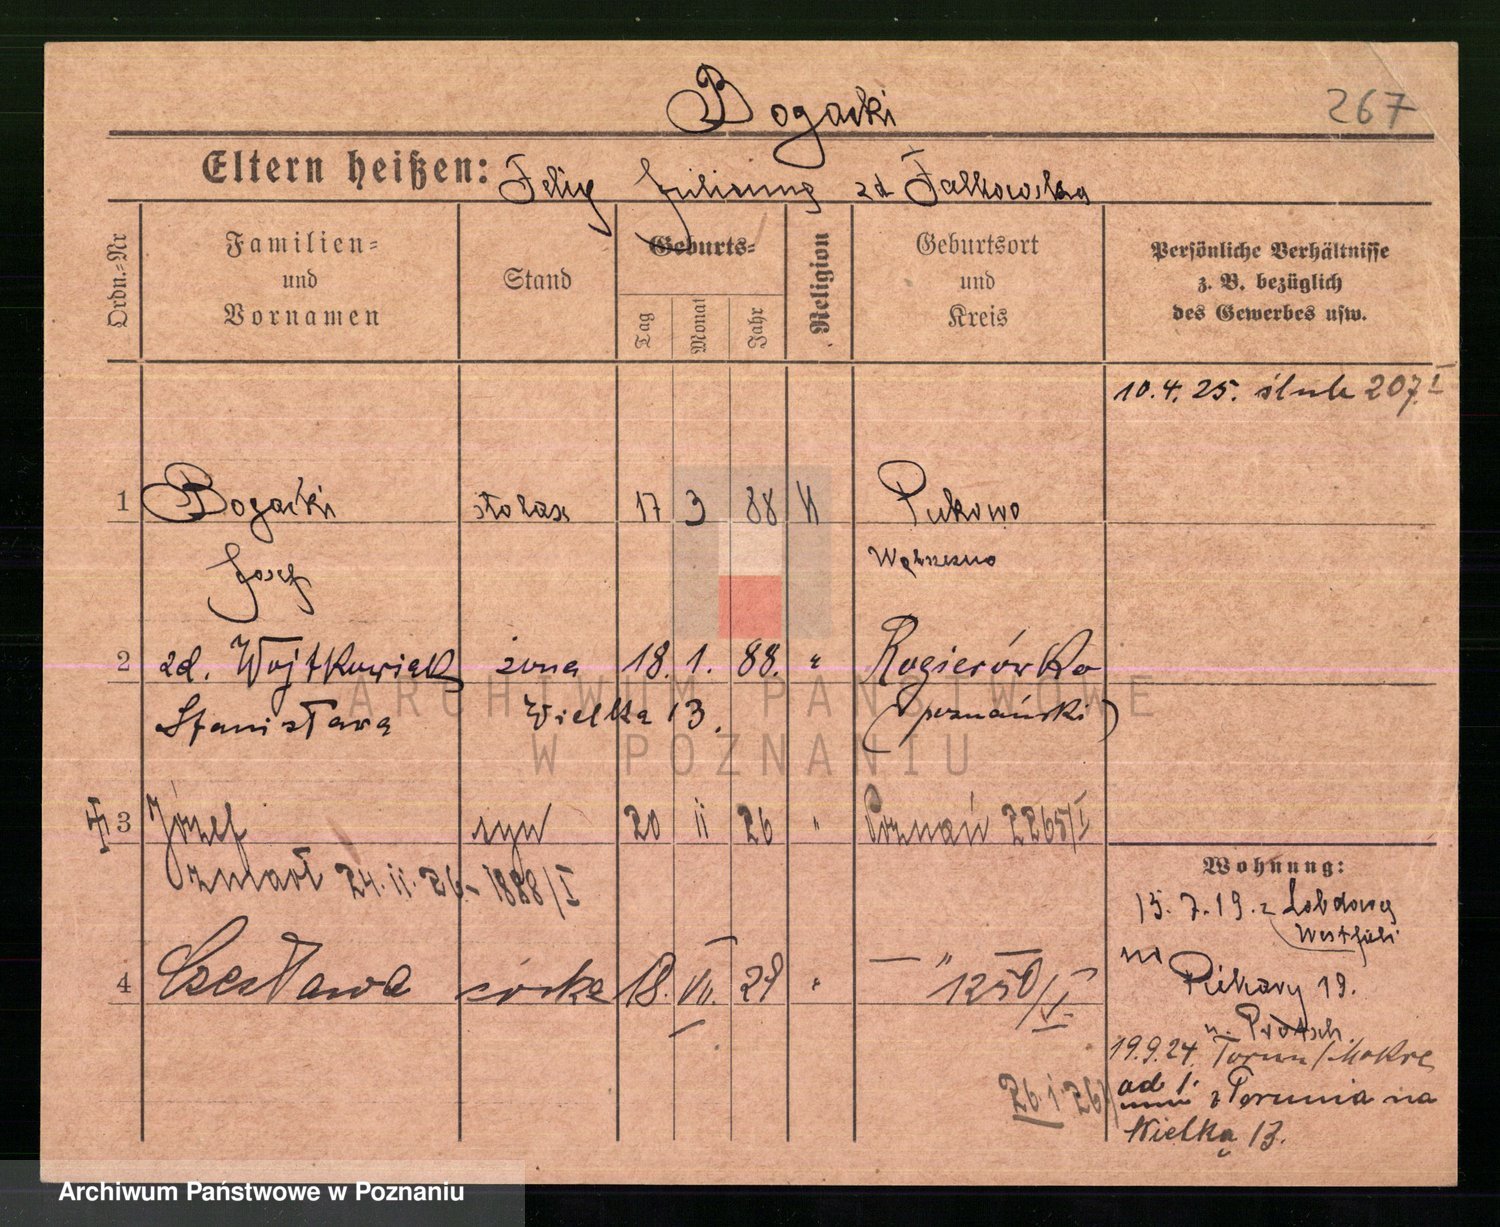 Bogacki
267
Eltern heißen: Felix Julianna zd Falkowska
Ordn.=Nr
Familien=
und
Vornamen
Stand
Geburts=
Tag
Monat
Jahr
Religion
Geburtsort
und
Kreis
Persönliche Verhältnisse
z. B. bezüglich
des Gewerbes usw.
10.4.25. ślub 207/I
1 Bogacki stolarz 17 3 88 K Pukowo
Josef Wąbrzeźno
2 zd. Wojtkowiak żona 18. 1. 88. " Rogierówko
Stanisława Wielka 13. (poznański)
3 Józef syn 20 11 26 " Poznań 2265/I
zmarł 24.11.26 - 1888/I
4 Czesława córka 18. VII. 29 " — " — 1250/I
Wohnung:
15.7.19. z Lobdowy
Westfali
na
Piekary 19.
n. Protsch.
19.9.24. Toruń/Mokre
26.1.26/ od 1. z Torunia na
Wielką 13.
ARCHIWUM PAŃSTWOWE
W POZNANIU
Archiwum Państwowe w Poznaniu